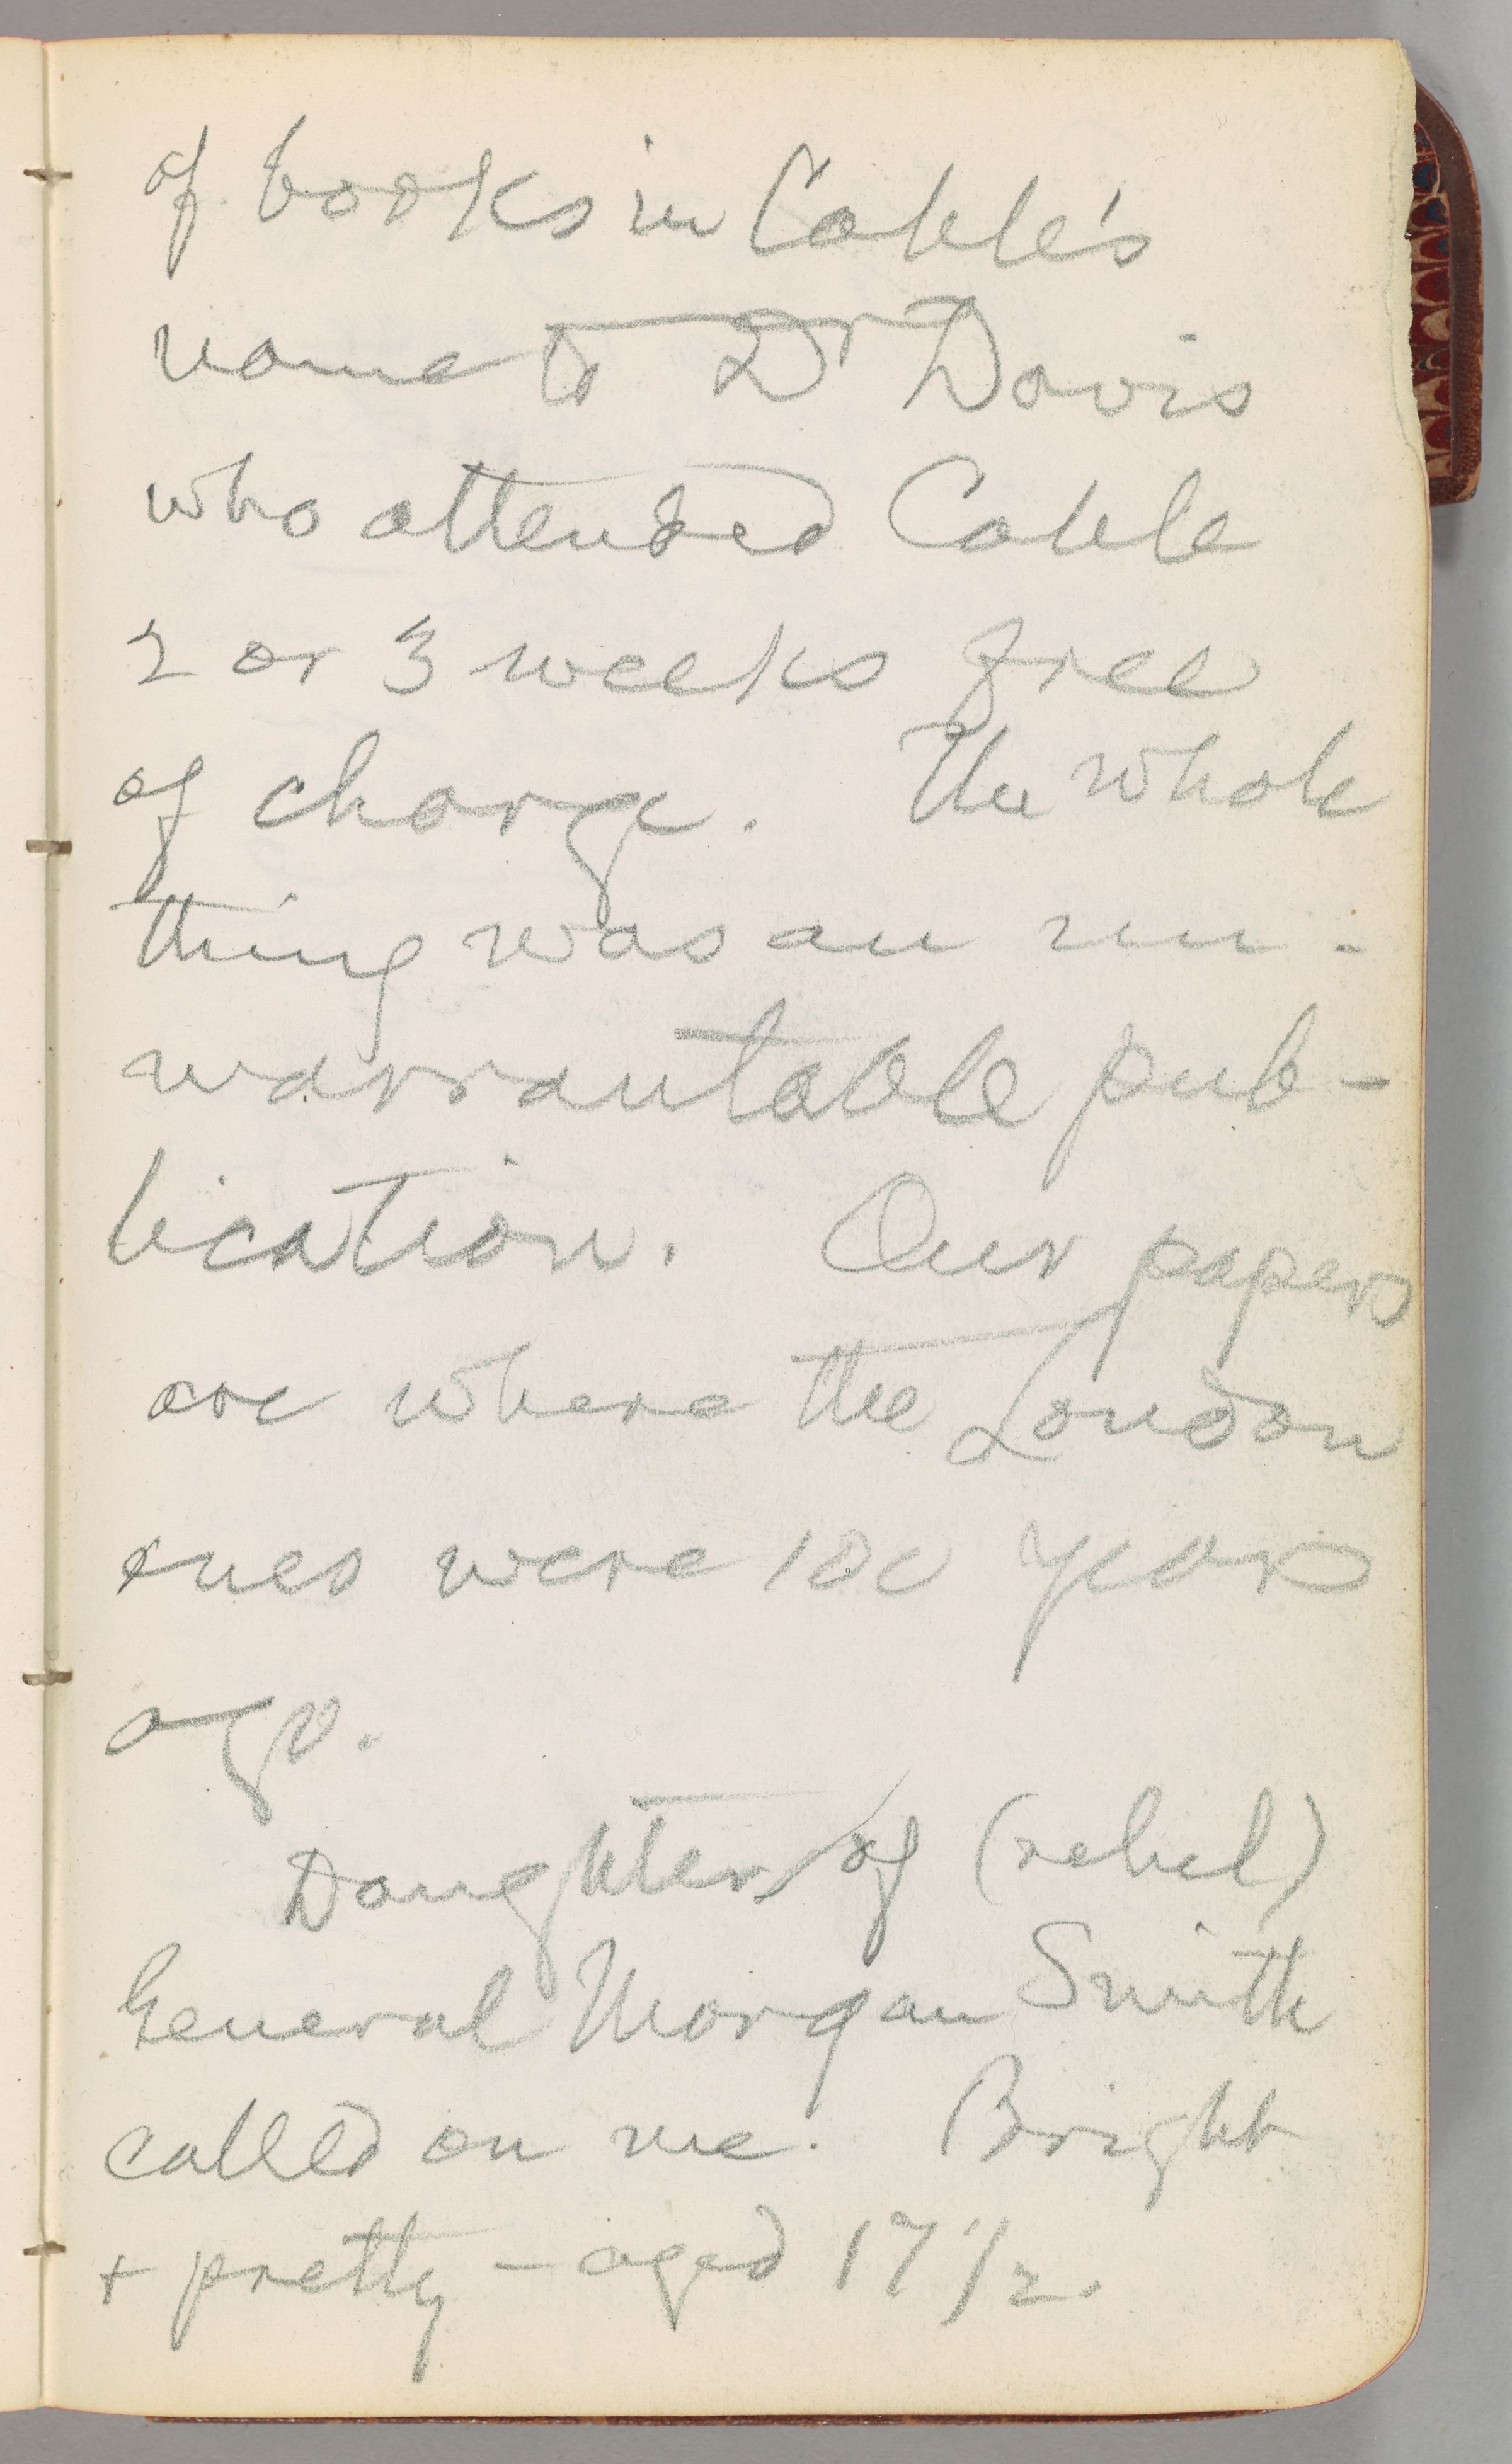 of books in Cable's
name to Dr Davis
who attended Cable
2 or 3 weeks free
of charge. The whole
thing was an un-
warrantable pub-
lication. Our papers
are where the London
ones were 100 years
ago.
Daughter of (rebel)
General Morgan Smith
called on me. Bright
+ pretty – aged 17 1/2.